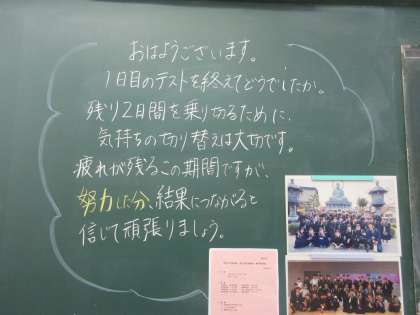 おはようございます。
1日目のテストを終えてどうでしたか。
残り2日間を乗り切るために、
気持ちの切り替えは大切です。
疲れが残るこの期間ですが、
努力した分、結果につながると
信じて頑張りましょう。